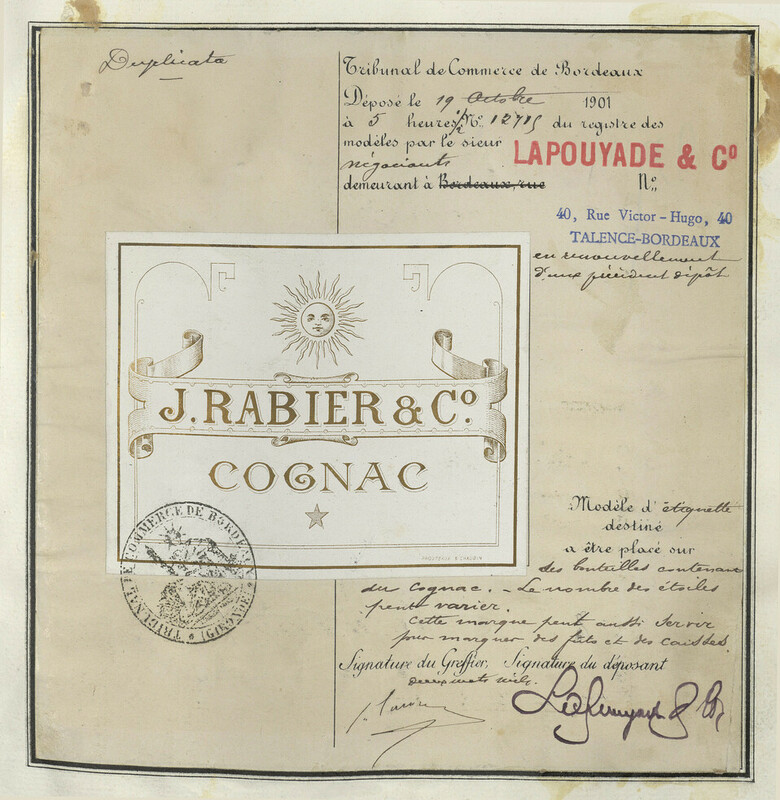 Duplicata
Tribunal de Commerce de Bordeaux
Déposé le 19 Octobre 1901
à 5 heures 1/2 No. 12715 du registre des
modèles par le sieur LAPOUYADE & Co
négociants
demeurant à Bordeaux, rue No.
40, Rue Victor-Hugo, 40
TALENCE-BORDEAUX
en renouvellement
d'un précédent dépôt
J. RABIER & Co.
COGNAC
Modèle d'étiquette
destiné
a être placé sur
des bouteilles contenant
du Cognac. - Le nombre des étoiles
peut varier.
Cette marque peut aussi servir
pour marquer des fûts et des caisses.
Signature du Greffier, Signature du déposant
deux mots nuls.
Lapouyade & Co
TRIBUNAL DE COMMERCE DE BORDEAUX
(GIRONDE)